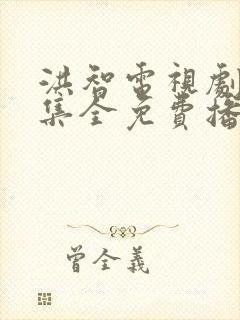 洪智電視劇
集全免費播
曾全義